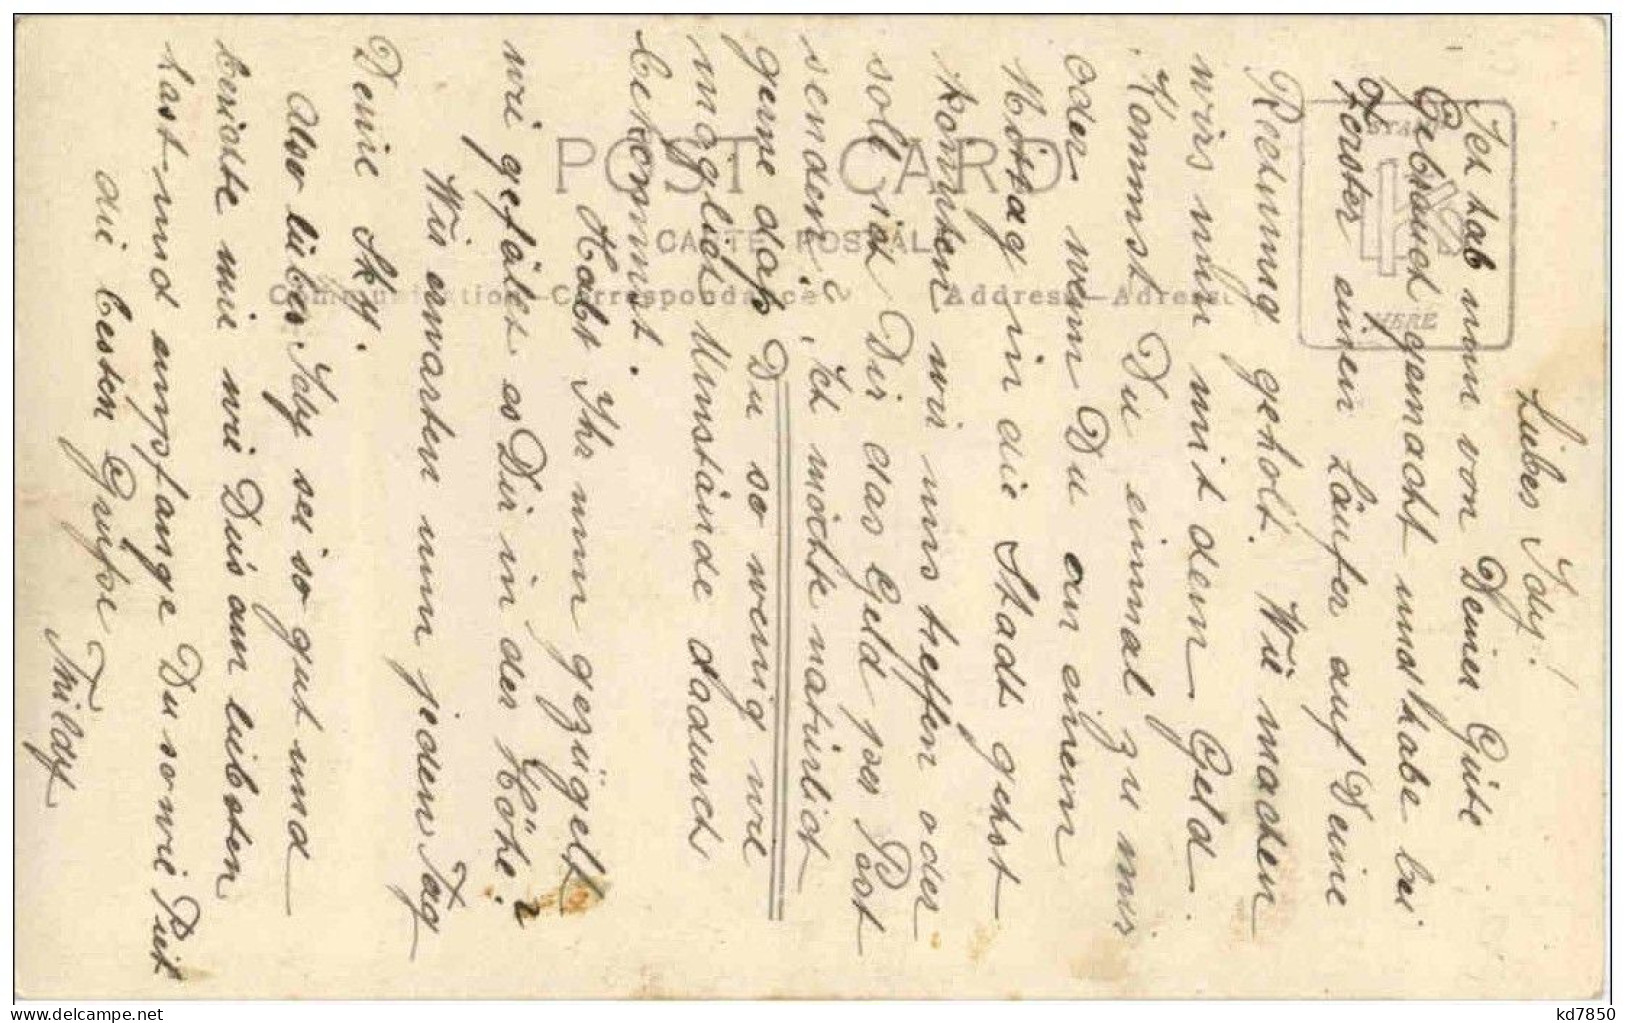 Liebes Idy!
Ich hab nun von Deiner Güte
Gebrauch gemacht und habe bei
Forster einen Läufer auf Deine
Rechnung geholt. Wie machen
wirs nun mit dem Geld.
Kommst Du einmal zu mir
oder wenn Du an einem
Mittag in die Stadt gehst
könnten wir uns treffen oder
soll ich Dir das Geld per Post
senden? Ich möchte natürlich
gerne daß Du so wenig wie
möglich Umstände daduch
bekommst.
Habt Ihr nun gezügelt
wie gefällt es Dir in der Höhe?
Wir erwarten nun jeden Tag
Deine
Also liebes Idy sei so gut und
berichte mir wie Du's am liebsten
hast und empfange Du sowie Piet
die besten Grüße Thildy
POST CARD
CARTE POSTALE
Communication—Correspondance
Address—Adresse
STAMP
HERE
kd7850